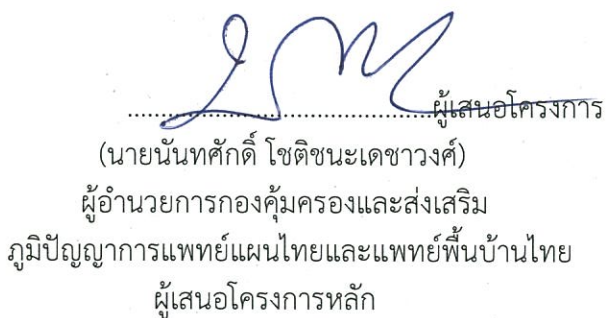 ........................................ผู้เสนอโครงการ
(นายนันทศักดิ์ โชติชนะเดชาวงศ์)
ผู้อำนวยการกองคุ้มครองและส่งเสริม
ภูมิปัญญาการแพทย์แผนไทยและแพทย์พื้นบ้านไทย
ผู้เสนอโครงการหลัก